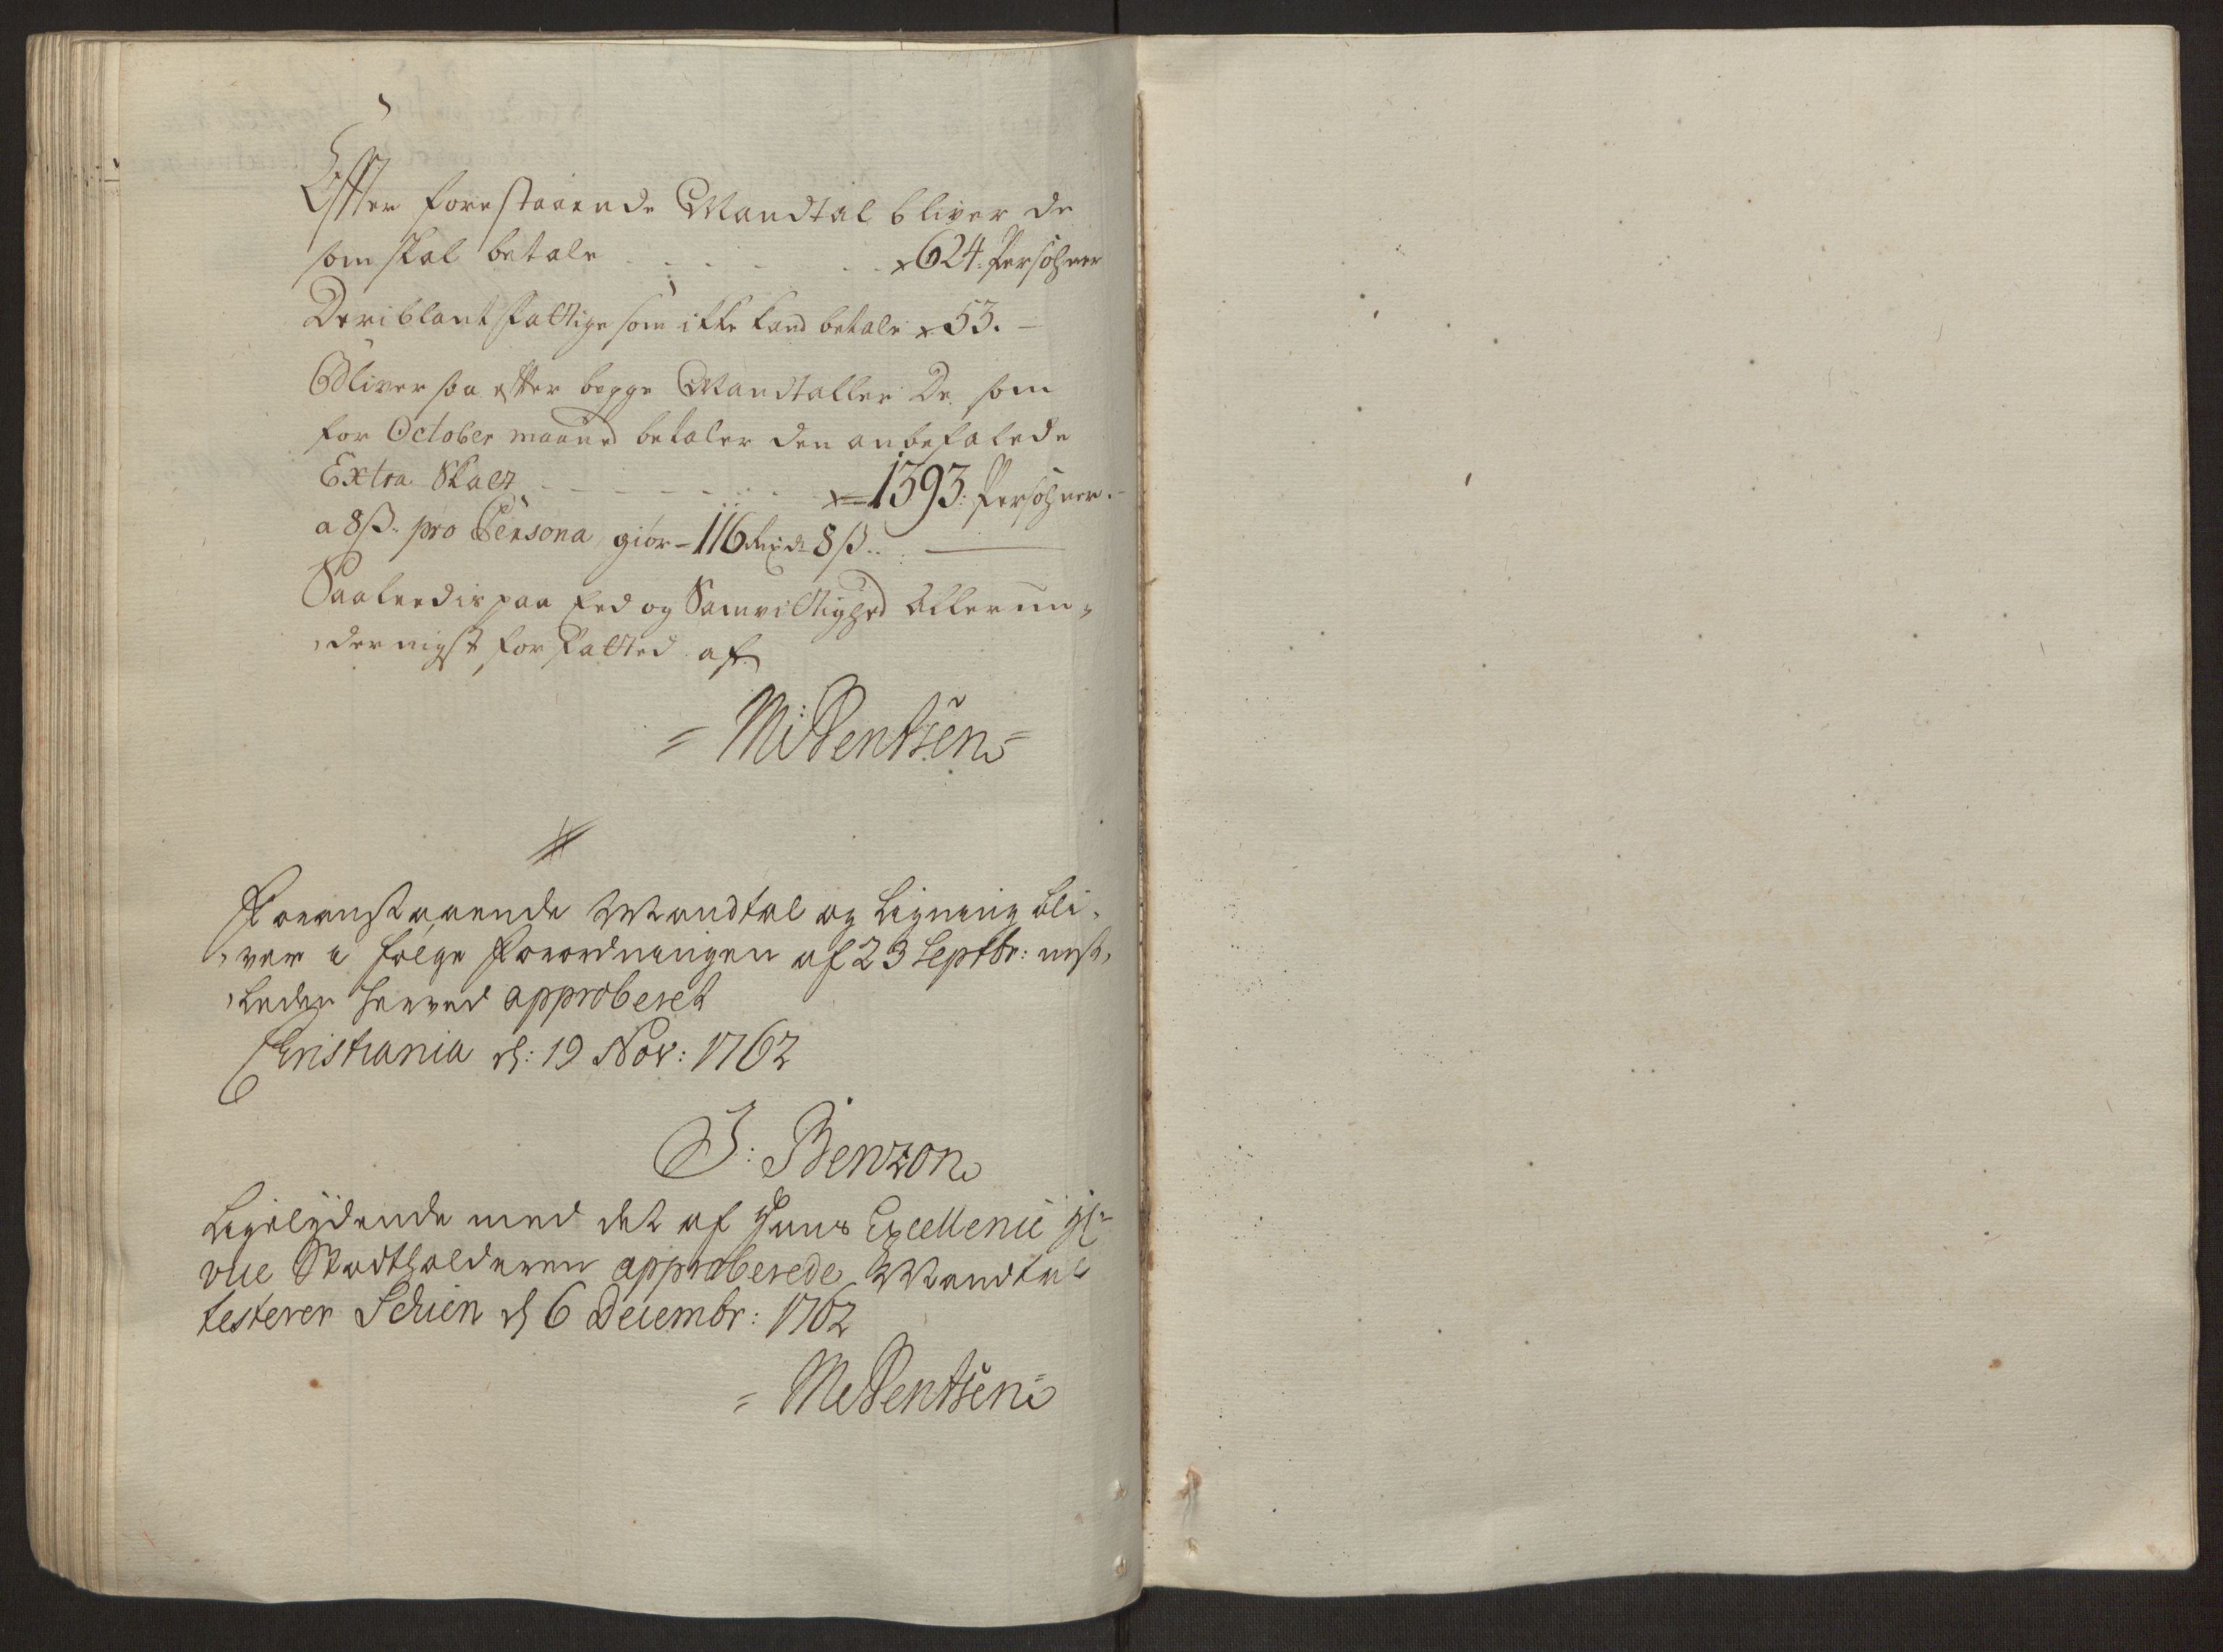 Efter forestaaende Mandtal bliver de
som skal betale - - - - - x 624: Persohner
Deriblant Fattige som ikke kand betale x 53. —
Bliver saa efter begge Mandtaller De som
for October maaned betaler den anbefalede
Extra Skatt - - - - - - - x=1393: Persohner.-
a 8 ß. pro Persona giør = 116 rd 8 ß.. —
Saaleedis paa Eed og Samvittighed Allerun-
dernigst forfatted af
= M: Bentsen =
Foranstaaende Mandtal og Ligning bli-
ver i følge Forordningen af 23 Septbr: nest-
leden herved approberet
Christiania d: 19 Nov: 1762
J: Benzon
Ligelydende med det af Hans Excellence Hr
Vice Stadtholderen approberede Mandtal
testerer Schien d 6 Decembr: 1762
= M Bentsen